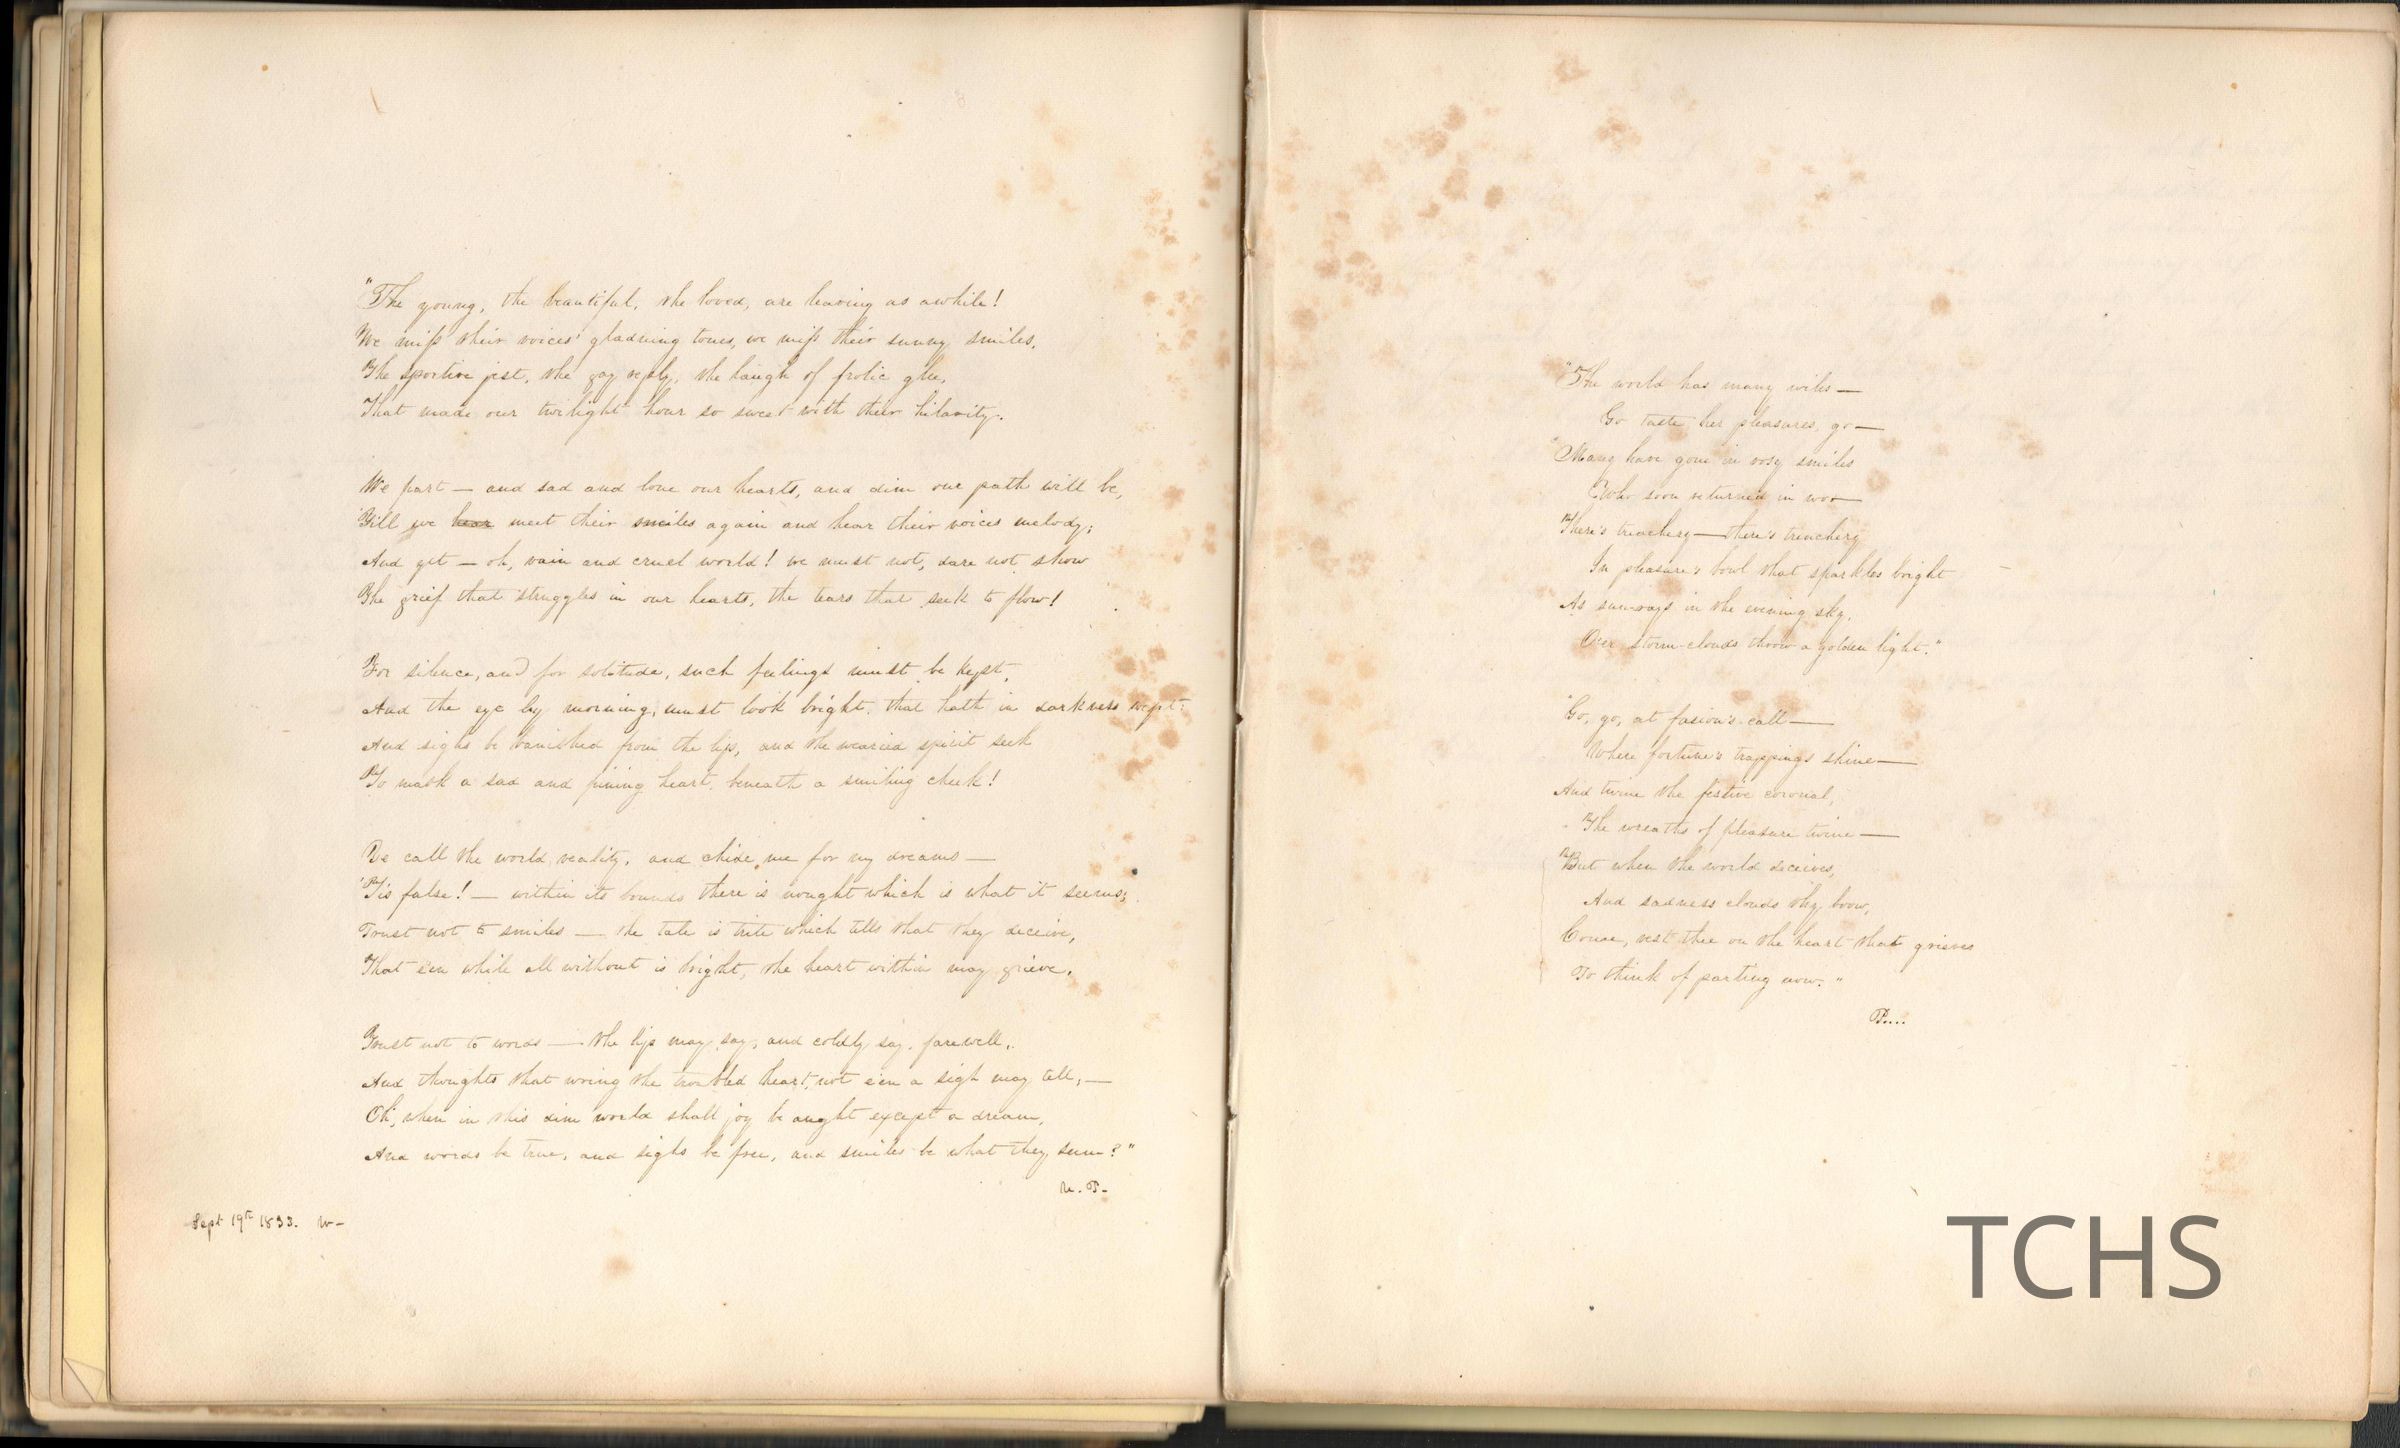 "The young, the beautiful, the loved, are leaving us awhile!
We miss their voices' gladning tones, we miss their sunny smiles,
The sportive jest, the gay reply, the laugh of frolic glee,
That made our twilight hour so sweet with their hilarity.
We part — and sad and lone our hearts, and dim our path will be,
Till we hear meet their smiles again and hear their voices melody;
And yet — oh, vain and cruel world! we must not, dare not show
The grief that struggles in our hearts, the tears that seek to flow!
For silence, and for solitude, such feelings must be kept,
And the eye by morning, must look bright, that hath in darkness wept:
And sighs be banished from the lips, and the wearied spirit seek
To mask a sad and pining heart, beneath a smiling cheek!
We call the world reality, and chide me for my dreams —
'Tis false! — within its bounds there is nought which is what it seems;
Trust not to smiles — the tale is trite which tells that they deceive,
That e'en while all without is bright, the heart within may grieve.
Trust not to words — the lips may say, and coldly say, farewell,
And thoughts that wring the troubled heart, not e'en a sigh may tell, —
Oh, when in this dim world shall joy be aught except a dream,
And words be true, and sighs be free, and smiles be what they seem?"
Sept 19th 1833. W-
"The world has many wiles —
Go taste her pleasures, go —
"Many have gone in rosy smiles
Who soon returned in woe —
There's treachery — there's treachery
In pleasure's bowl that sparkles bright
As sun-rays in the evening sky,
O'er storm-clouds throw a golden light."
"Go, go, at fasion's call —
Where fortune's trappings shine —
And twine the festive coronal,
The wreaths of pleasure twine —
But when the world deceives,
And sadness clouds thy brow,
Come, rest thee on the heart that grieves
To think of parting now."
P....
TCHS